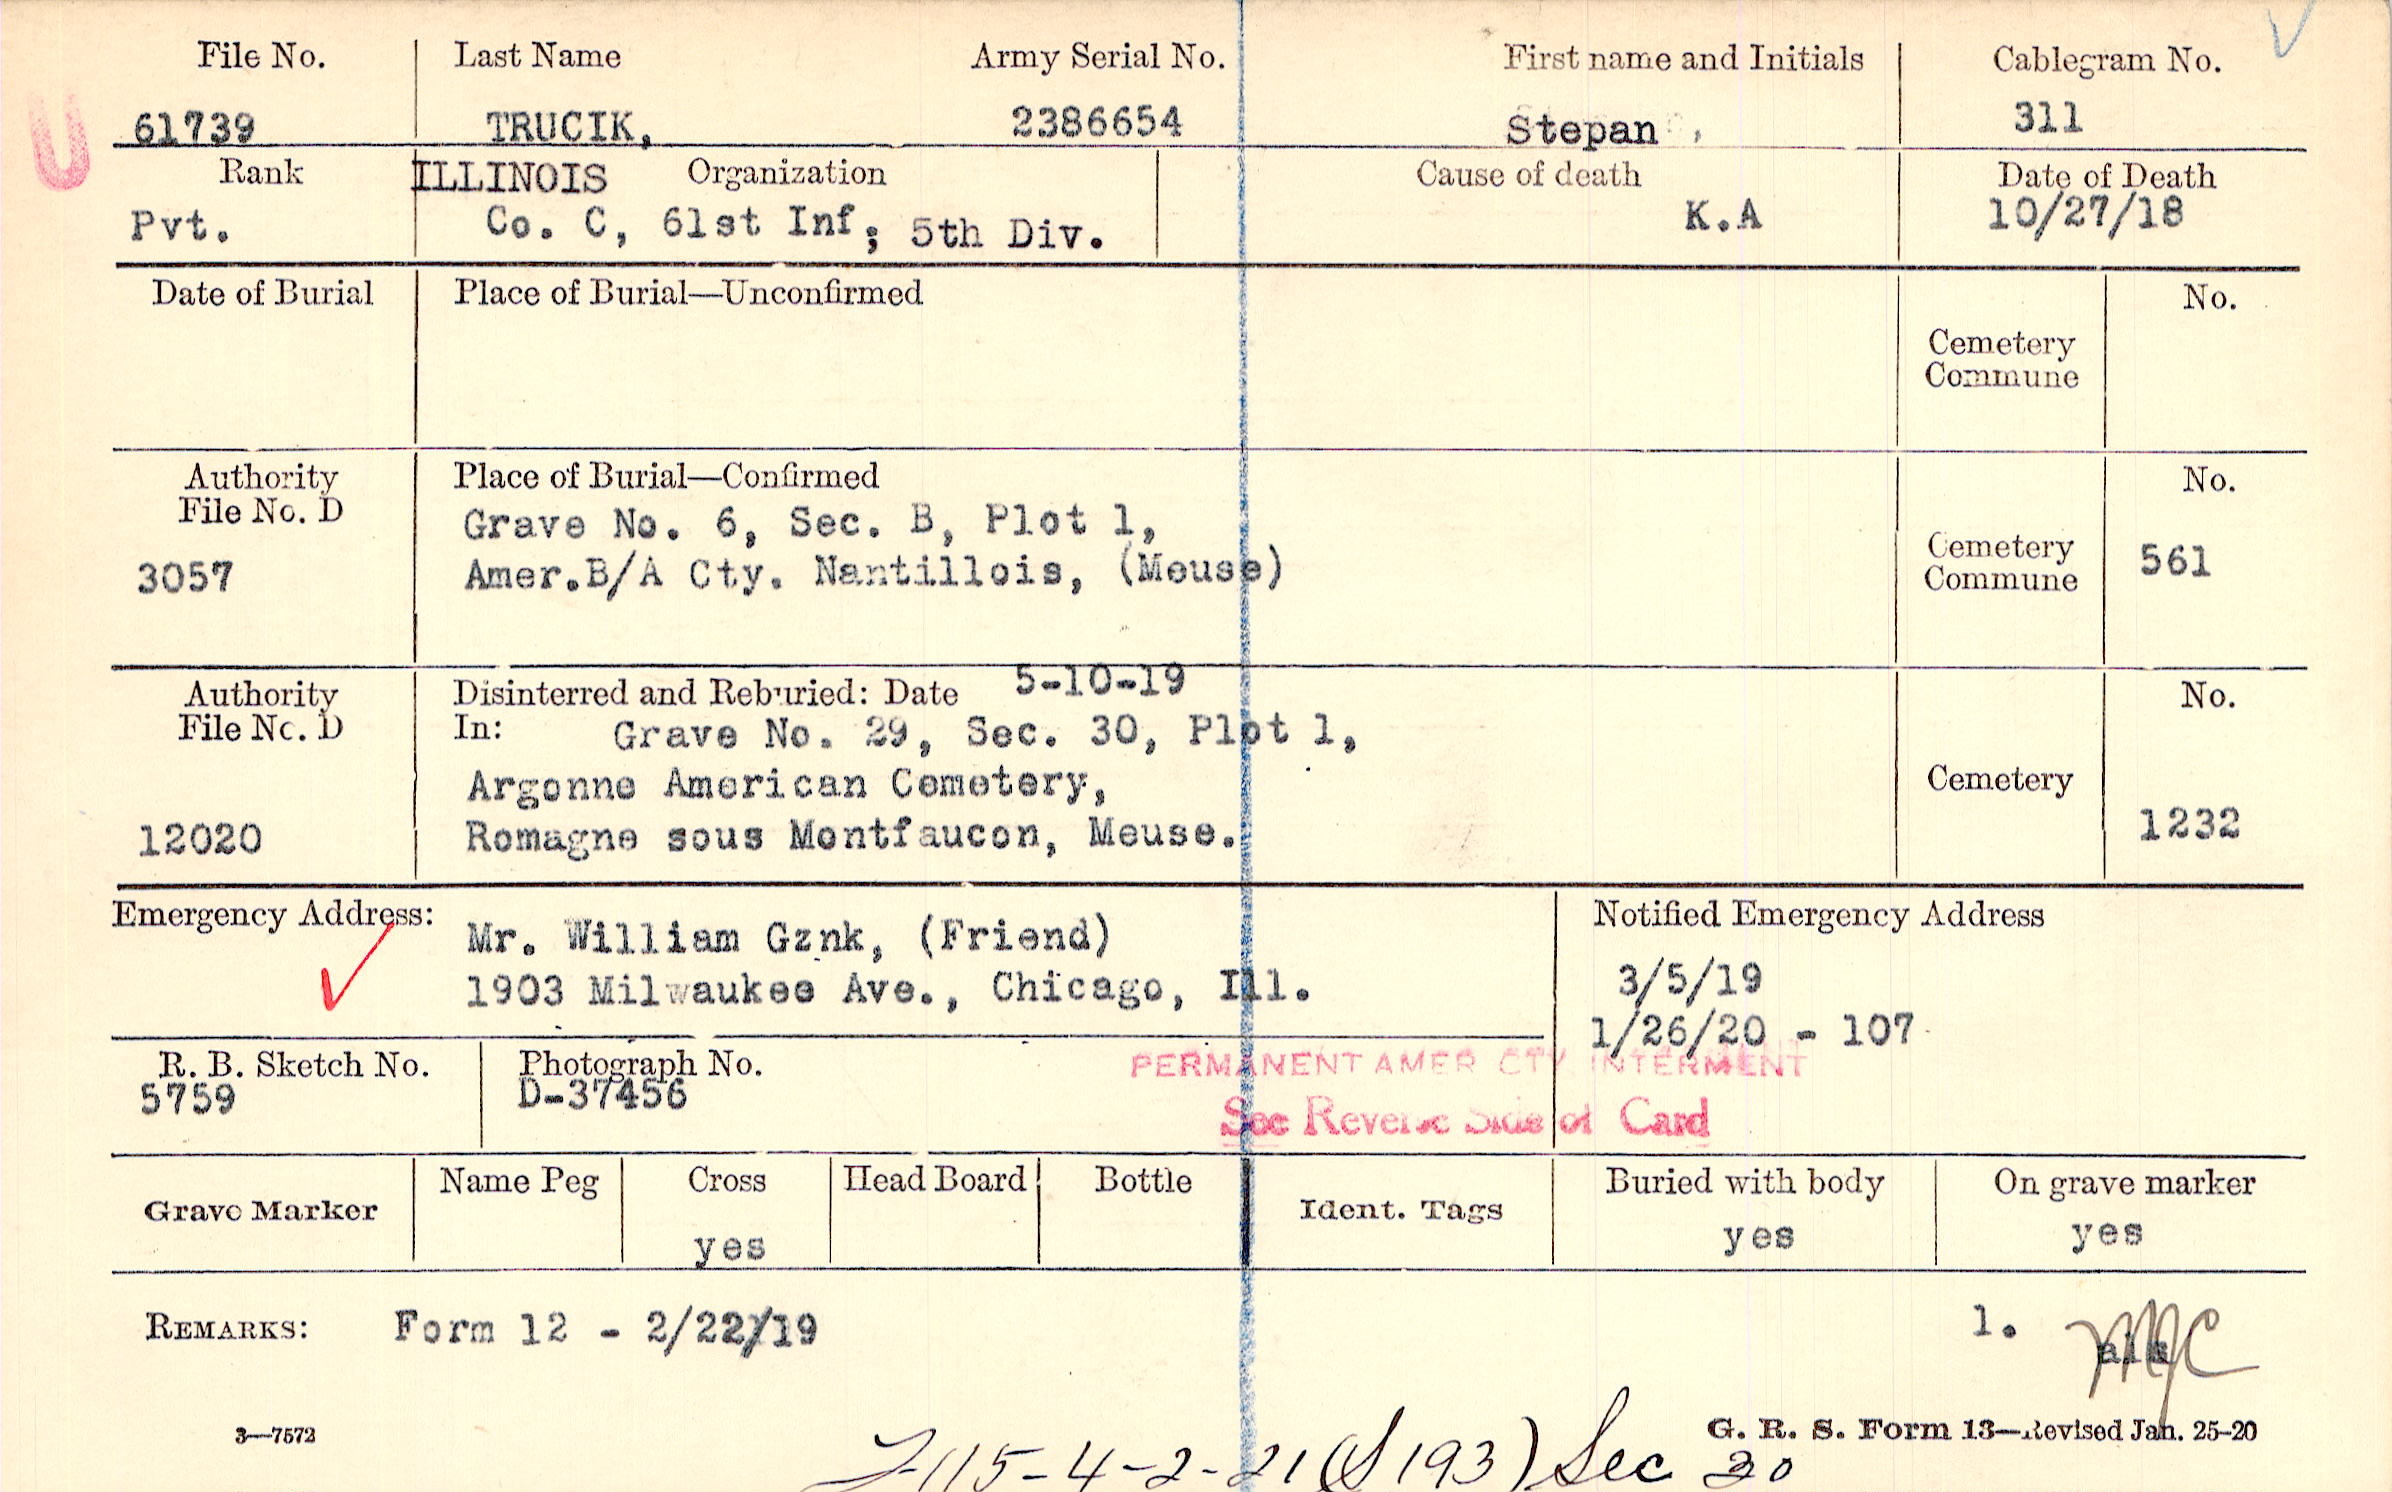 File No. Last Name Army Serial No. First name and Initials Cablegram No.
61739 TRUCIK, 2386654 Stepan 311
Rank ILLINOIS Organization Cause of death Date of Death
Pvt. Co. C, 61st Inf; 5th Div. K.A 10/27/18
Date of Burial Place of Burial—Unconfirmed No.
Cemetery
Commune
Authority Place of Burial—Confirmed No.
File No. D
Grave No. 6, Sec. B, Plot 1,
3057 Amer.B/A Cty. Nantillois, (Meuse) Cemetery 561
Commune
Authority Disinterred and Reburied: Date 5-10-19 No.
File No. D In: Grave No. 29, Sec. 30, Plot 1,
Argonne American Cemetery, Cemetery
12020 Romagne sous Montfaucon, Meuse. 1232
Emergency Address: Notified Emergency Address
Mr. William Gznk, (Friend)
1903 Milwaukee Ave., Chicago, Ill. 3/5/19
1/26/20 - 107
R. B. Sketch No. Photograph No. PERMANENT AMER CTY INTERMENT
5759 D-37456 See Reverse Side of Card
Grave Marker Name Peg Cross Head Board Bottle Ident. Tags Buried with body On grave marker
yes yes yes
REMARKS: Form 12 - 2/22/19 1.
MJC
3—7572 G. R. S. Form 13—Revised Jan. 25-20
115-4-2-21 (S 193) Sec 30
U